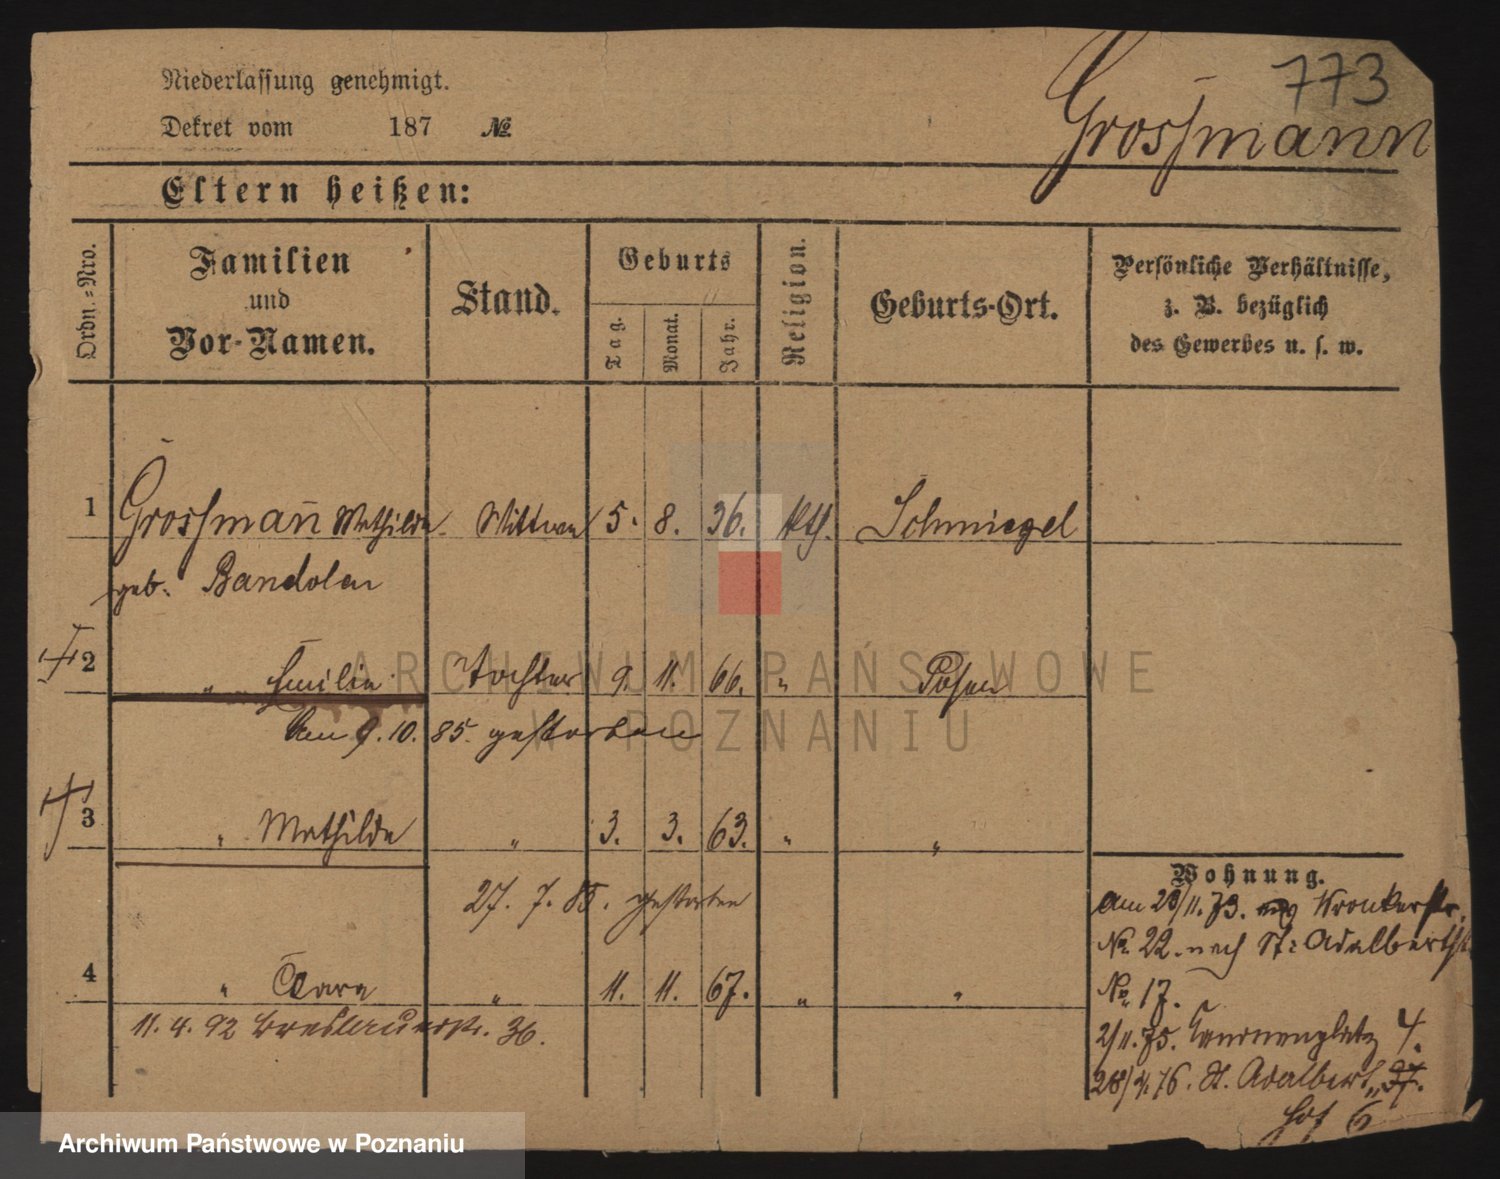 773
Grossmann
Niederlassung genehmigt.
Dekret vom 187 №
Eltern heißen:
Ordn.=Nro.
Familien und Vor-Namen.
Stand.
Geburts
Tag.
Monat.
Jahr.
Religion.
Geburts-Ort.
Persönliche Verhältnisse, z. B. bezüglich des Gewerbes u. s. w.
1 Grossmann Mathilde Wittwe 5. 8. 36. kth. Schmiegel
geb. Bandolen
2 " Emilie Tochter 9. 11. 66. " Posen
am 9. 10. 85. gestorben
3 " Mathilde " 3. 3. 63. " "
27. 7. 85. gestorben
4 " Clara " 11. 11. 67. " "
11. 4. 92 Breslauerstr. 36.
Wohnung.
am 28/11. 73. Kronkerstr.
№ 22. nach St: Adalbertst.
№ 17.
2/11. 75. 4.
28/4. 76. St. Adalbert 37.
Hof 6
ARCHIWUM PAŃSTWOWE
W POZNANIU
Archiwum Państwowe w Poznaniu